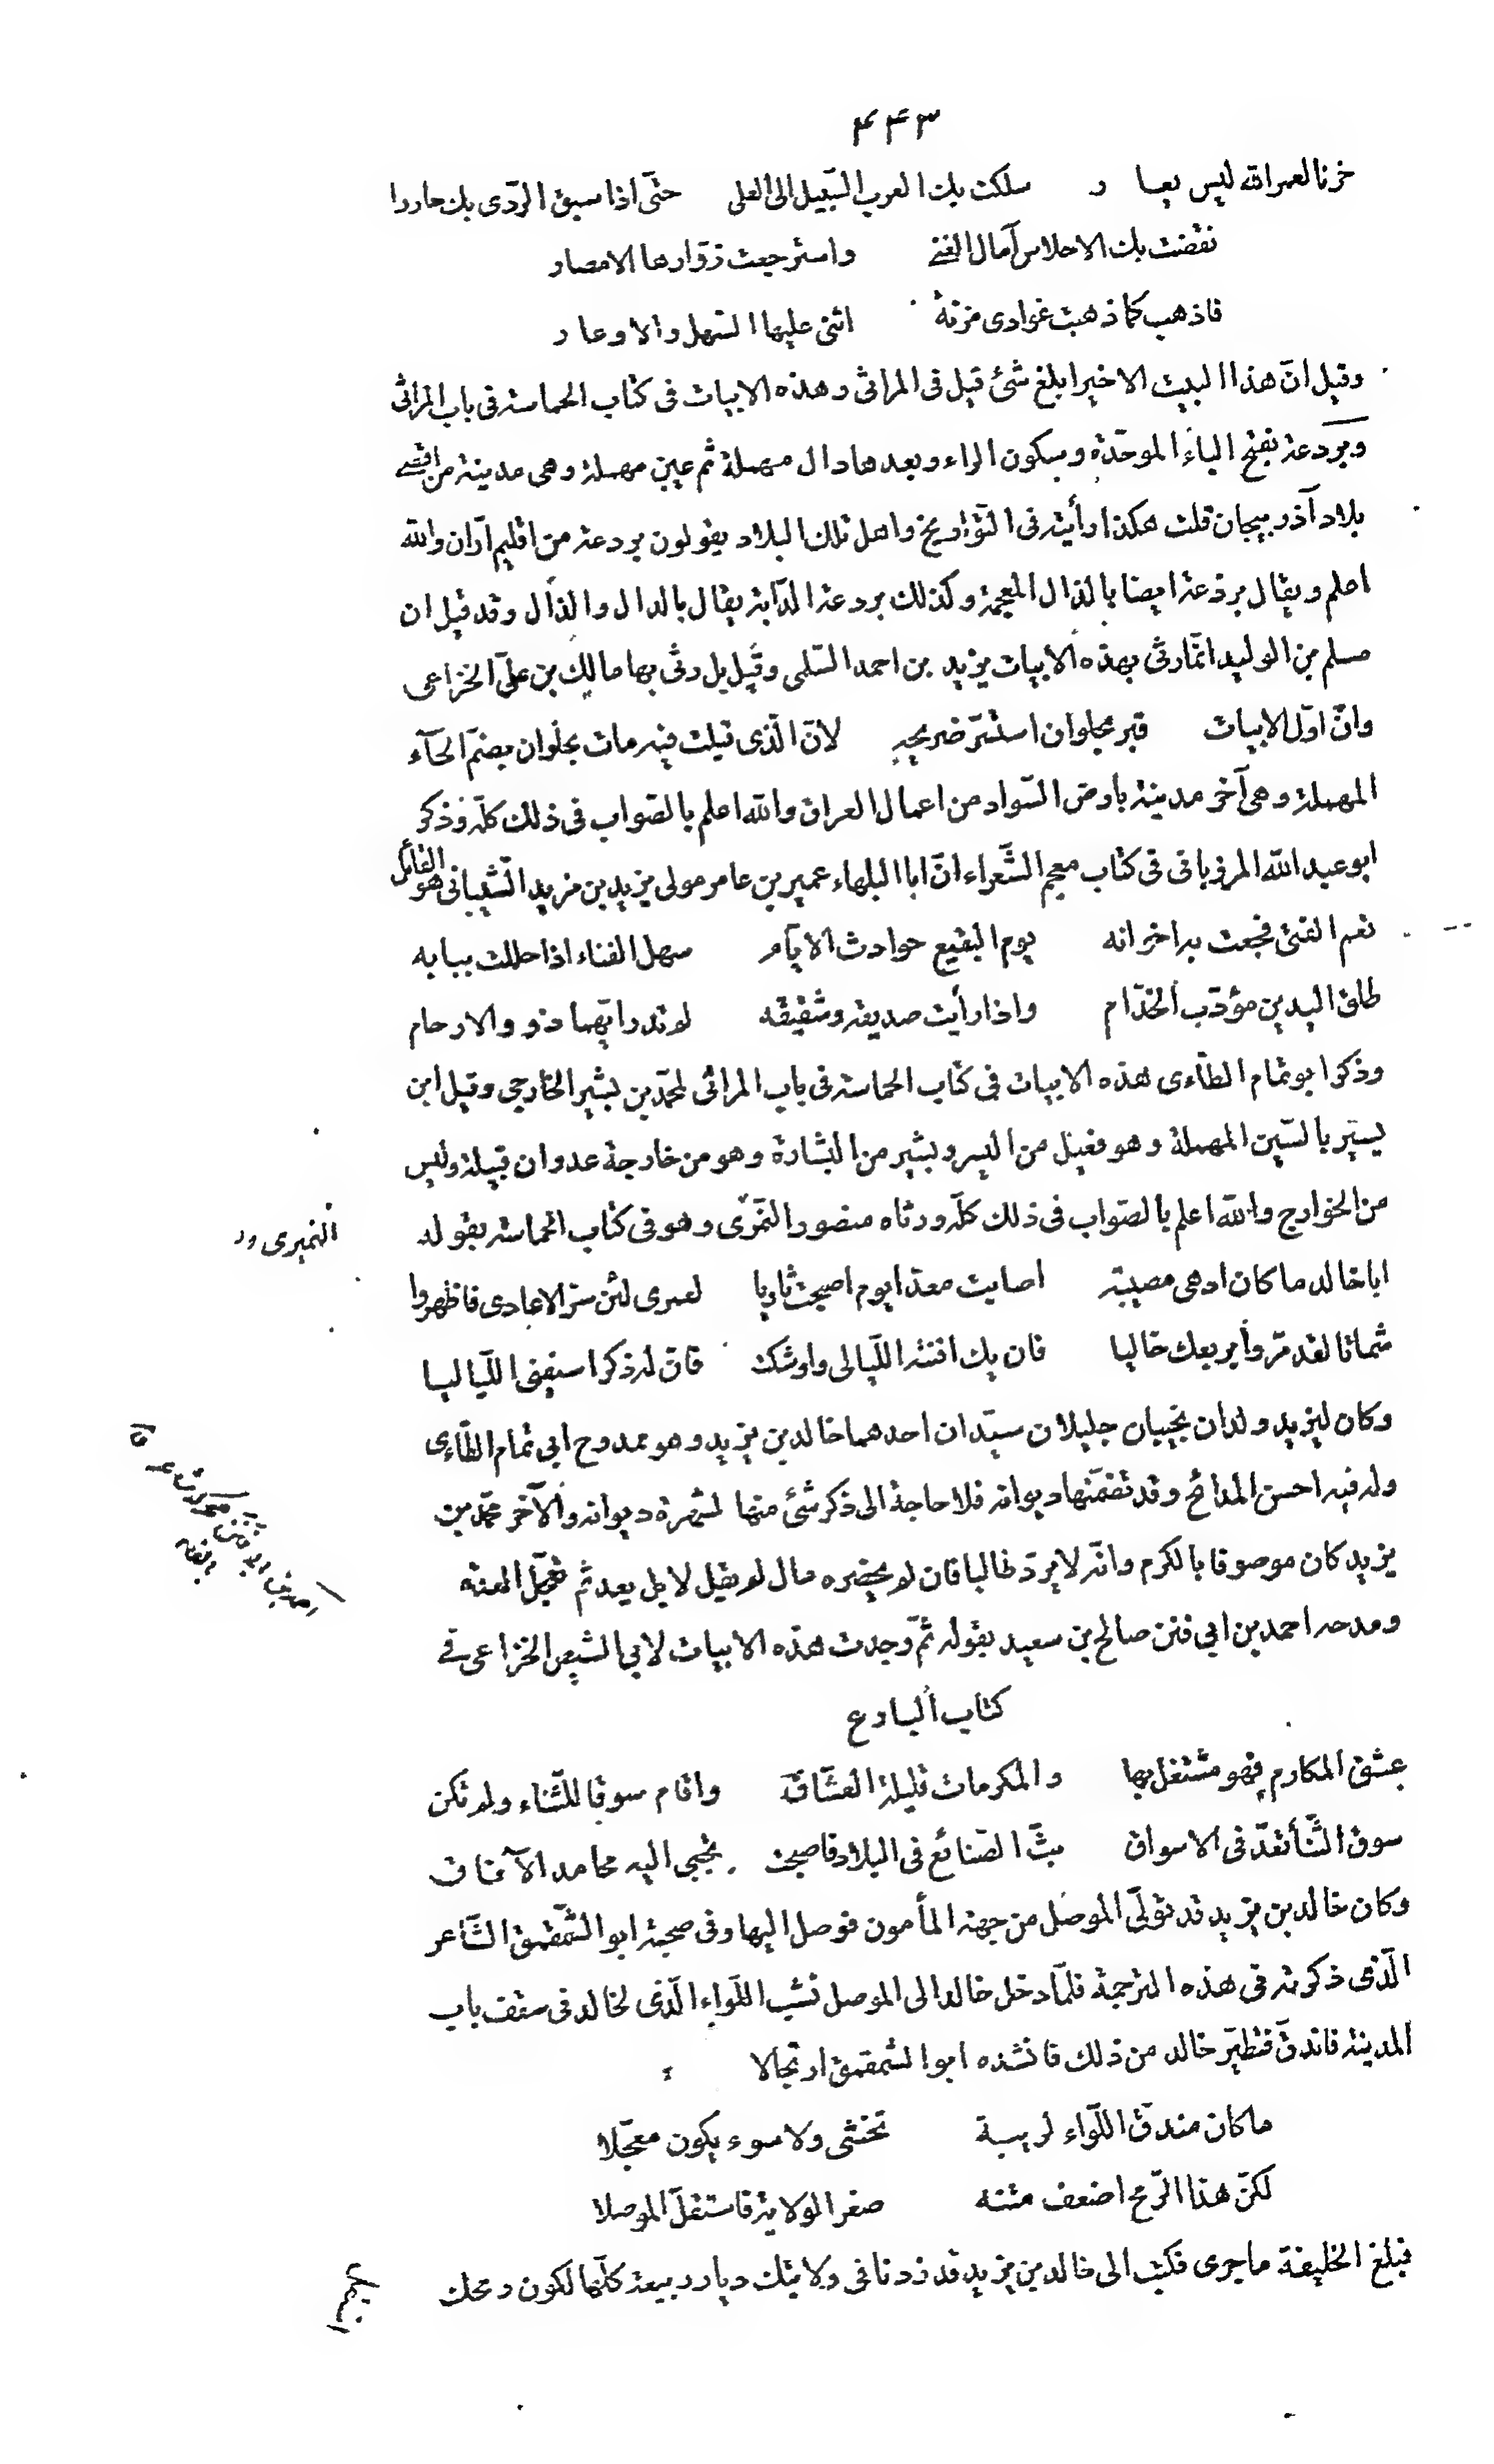 ۴۴۳
حزنا لعمر الله ليس يعار سلكت بك العرب السّبيل الى العلى حتّى اذا سبق الرّدى بك حاروا
نفضت بك الاحلاس آمال الغنى واسترجعت زوّارها الامصار
فاذهب كما ذهبت غوادى مزنة اثنى عليها السّهل والاوعار
وقيل انّ هذا البيت الاخير ابلغ شئ قيل فى المراثى وهذه الابيات فى كتاب الحماسة فى باب المراثى
وبَردعة بفتح الباء الموحّدة وسكون الراء وبعدها دال مهملة ثم عين مهملة وهى مدينة من اقصى
بلاد آذربيجان قلت هكذا رأيته فى التّواريخ واهل تلك البلاد يقولون بردعة من اقليم ارّان والله
اعلم ويقال برذعة ايضا بالذال المعجمة وكذلك بردعة الدّابة يقال بالدال والذال وقد قيل ان
مسلم بن الوليد انّما رثى بهذه الابيات يزيد بن احمد السّلمى وقيل بل رثى بها مالك بن علىّ الخزاعى
وانّ اوّل الابيات قبر بحلوان استسّر ضريحه لانّ الّذى قيلت فيه مات بحلوان بضمّ الحآء
المهملة وهى آخر مدينة بارض السّواد من اعمال العراق والله اعلم بالصّواب فى ذلك كلّه وذكر
ابو عبد الله المرزبانى فى كتاب معجم الشّعراء انّ ابا البلهاء عمير بن عامر مولى يزيد بن مزيد الشّيبانى هو القائل
نعم الفتى فجعت به اخوانه يوم البقيع حوادث الايّام سهل الفناء اذا حللت ببابه
طلق اليدين مؤدّب الخدّام واذا رأيت صديقه وشقيقه لم تدر ايّهما ذوو الارحام
وذكر ابو تمام الطّاءى هذه الابيات فى كتاب الحماسة فى باب المراثى لمحمّد بن بشير الخارجى وقيل ابن
يسير بالسّين المهملة وهو فعيل من اليسر وبشير من البشارة وهو من خارجة عدوان قبيلة وليس
من الخوارج والله اعلم بالصّواب فى ذلك كلّه ورثاه منصور النّمرّى وهو فى كتاب الحماسة بقوله
النميرى
ابا خالد ما كان ادهى مصيبة اصابت معدّا يوم اصبحت ثاويا لعمرى لئن سرّ الاعادى فاظهروا
شماتا لقد مرّوا بربعك خاليا فان يك افنته اللّيالى واوشكت فانّ له ذكرا سيفنى اللّياليا
وكان ليزيد ولدان نجيبان جليلان سيّدان احدهما خالد بن يزيد وهو ممدوح ابى تمام الطّاءى
وله فيه احسن المدائح وقد تضمّنها ديوانه فلا حاجة الى ذكر شئ منها لشهرة ديوانه والآخر محمّد بن
يزيد كان موصوفا بالكرم وانّه لا يردّ طالبا فان لم يحضره مال لم يقل لا بل يعد ثم يعجّل العدة
ومدحه احمد بن ابى فنن صالح بن سعيد بقوله ثمّ وجدت هذه الابيات لابى الشيص الخزاعى فى
كتاب البارع
عشق المكارم فهو مشتغل بها والمكرمات قليلة العشّاق واقام سوقا للثّناء ولم تكن
سوق الثّنأ تعدّ فى الاسواق بثّ الصّنائع فى البلاد فاصبحت تجبى اليه محامد الآفاق
وكان خالد بن يزيد قد تولّى الموصل من جهة المأمون فوصل اليها وفى صحبته ابو الشّمقمق الشّاعر
الّذى ذكرته فى هذه الترجمة فلمّا دخل خالد الى الموصل نشب اللّواء الّذى لخالد فى سقف باب
المدينة فاندقّ فتطيّر خالد من ذلك فانشده ابو الشمقمق ارتجالا
ما كان مندقّ اللّواء لريبة تخشى ولا سوء يكون معجّلا
لكنّ هذا الرّمح اضعف متنه صغر الولاية فاستقلّ الموصلا
فبلغ الخليفة ما جرى فكتب الى خالد بن يزيد قد زدنا فى ولايتك ديار ربيعة كلّها لكون رمحك